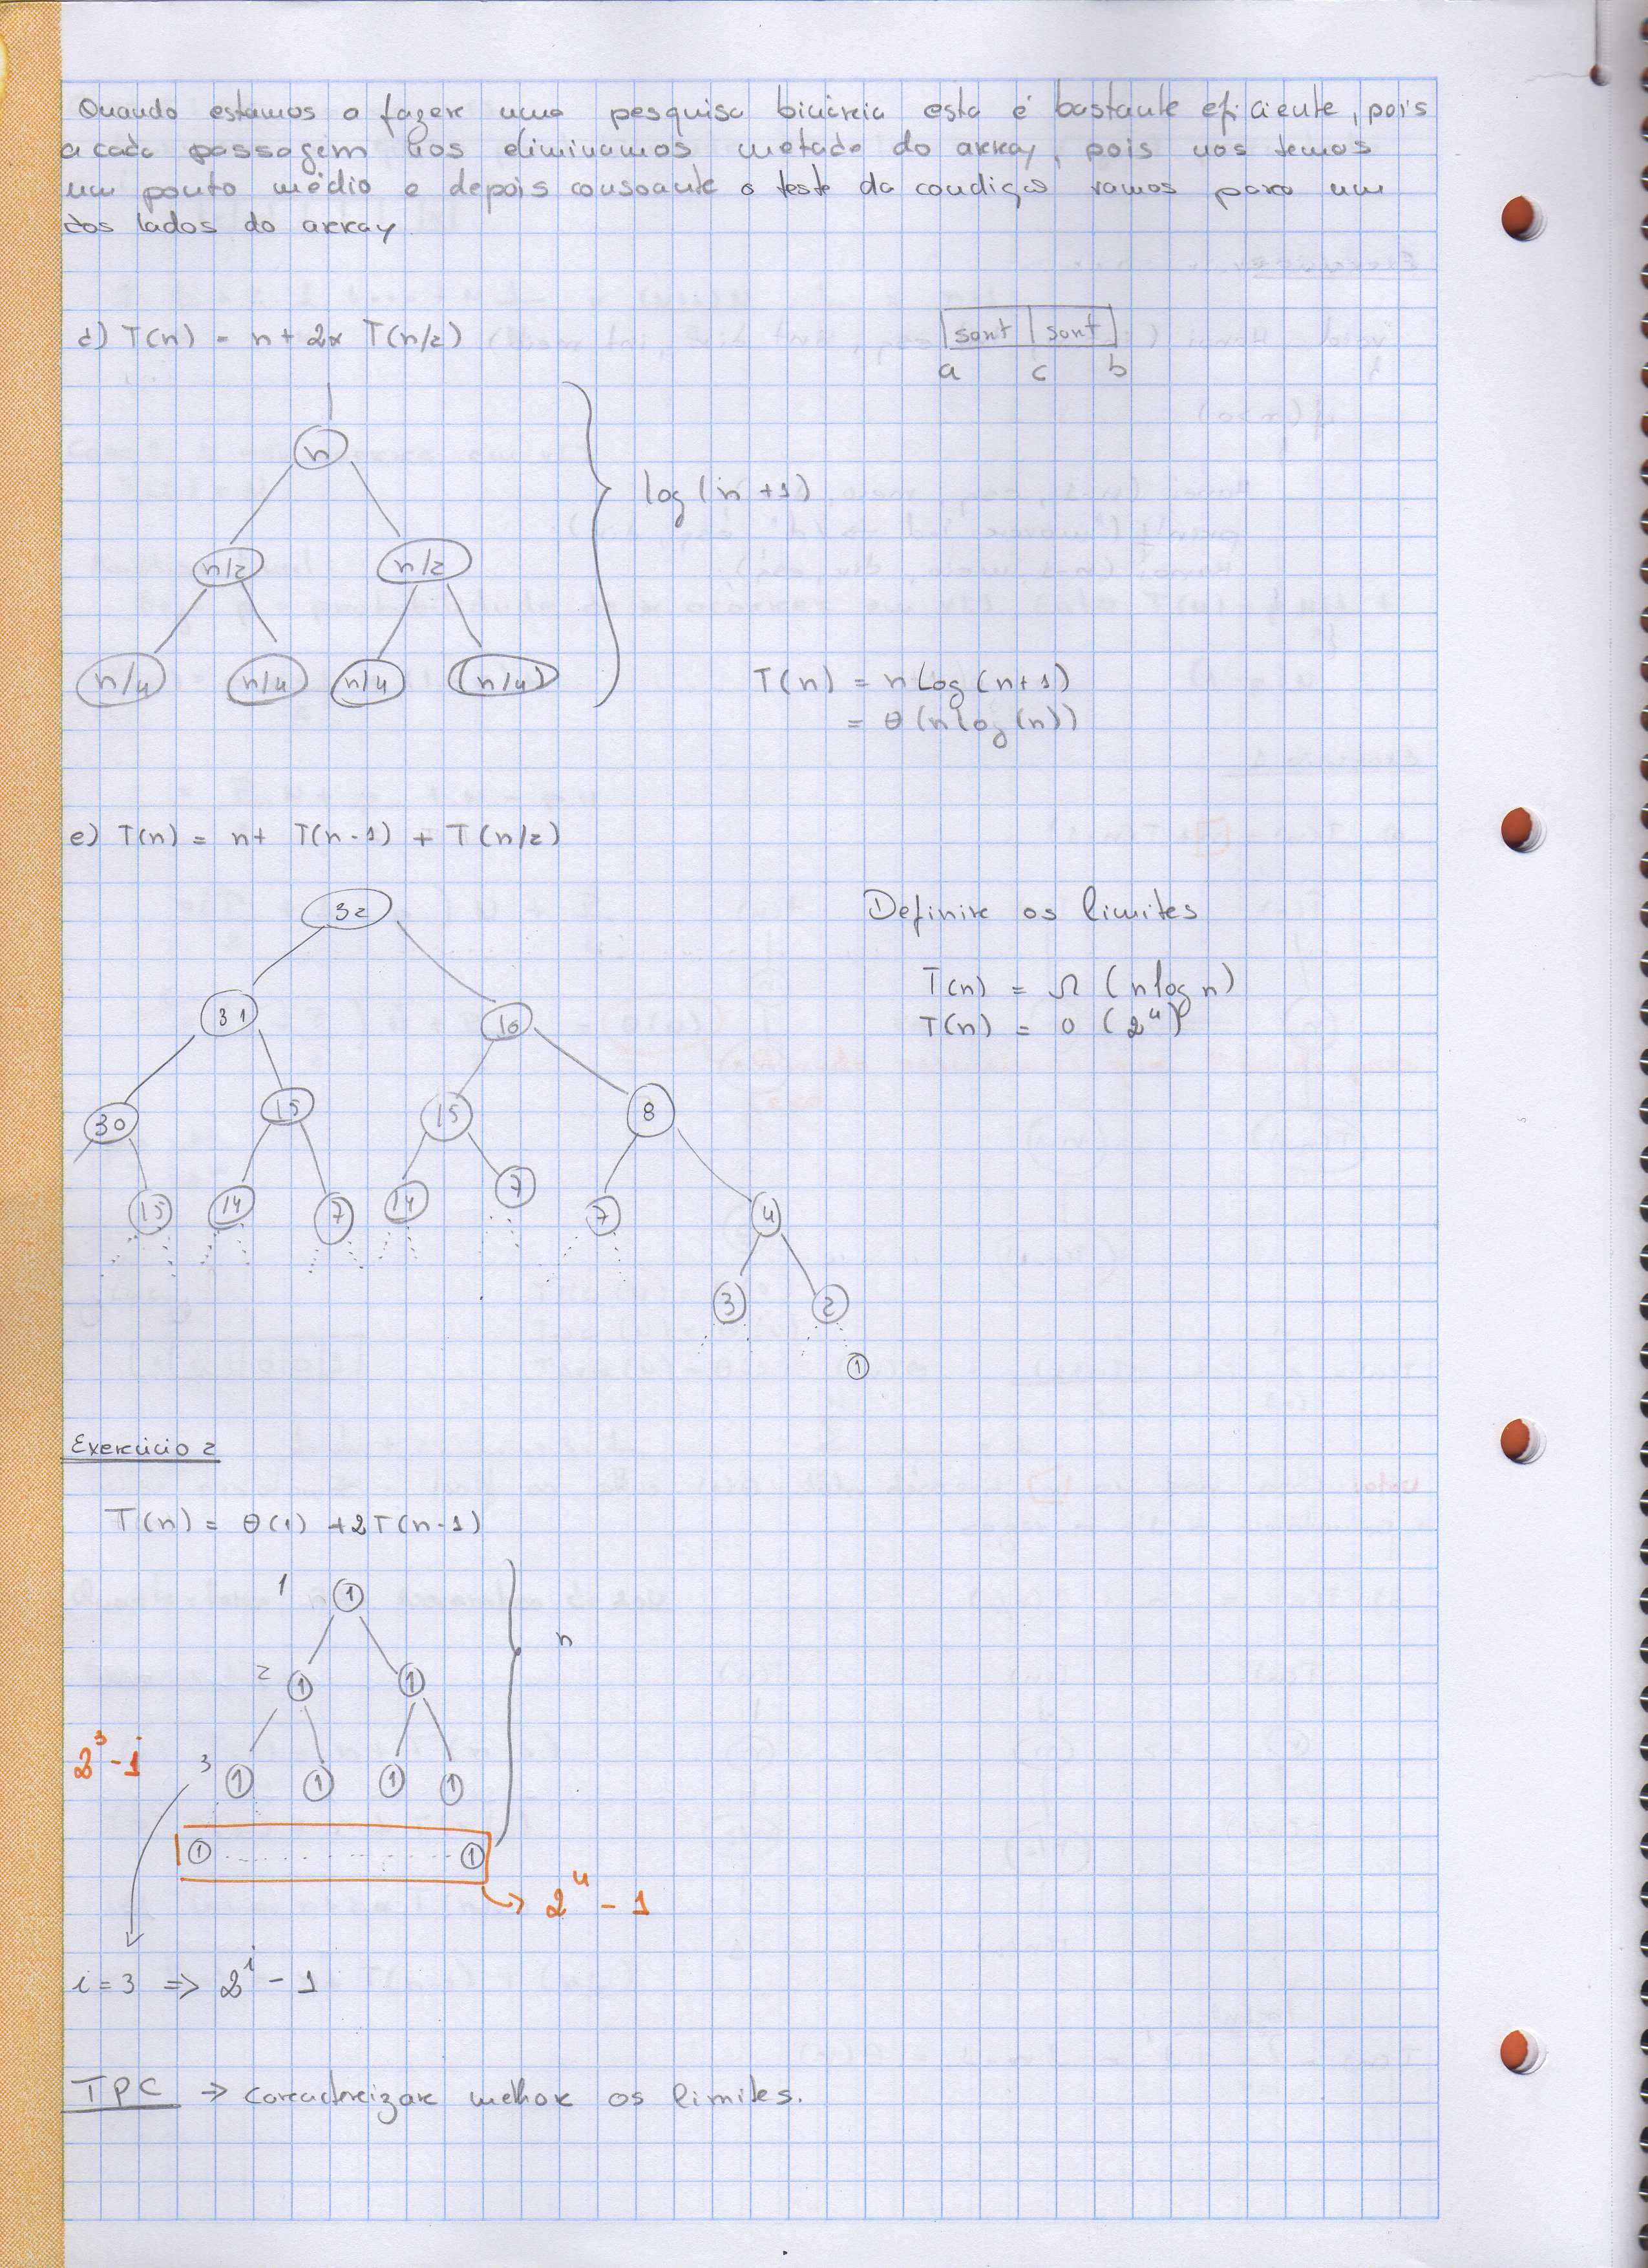 Quando estamos a fazer uma pesquisa binária esta é bastante eficiente, pois
a cada passagem nos eliminamos metade do array, pois nos temos
um ponto médio e depois consoante o teste da condição vamos para um
dos lados do array
d) T(n) = n + 2x T(n/2)
sort sort
a c b
n
n/2 n/2
n/4 n/4 n/4 (n/4)
log(n+1)
T(n) = n log(n+1)
= θ(n log(n))
e) T(n) = n + T(n-1) + T(n/2)
Definir os limites
T(n) = Ω (n log n)
T(n) = O (2ⁿ)
32
31 16
30 15 15 8
15 14 7 14 7 7 4
3 2
1
Exercicio 2
T(n) = θ(1) + 2T(n-1)
1 1
n
2 1 1
2³-1 3 1 1 1 1
1 1
2ⁿ - 1
i=3 => 2ⁱ - 1
TPC → caracterizar melhor os limites.